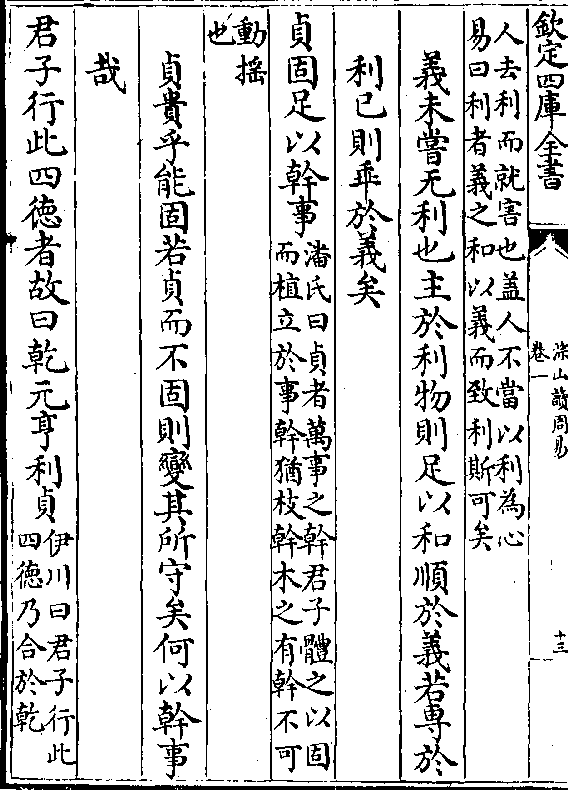 欽定四庫全書
深山讀周易
卷一
十三
人去利而就害也蓋人不當以利為心
易曰利者義之和以義而致利斯可矣
義未嘗无利也主於利物則足以和順於義若專於
利已則乖於義矣
貞固足以幹事
潘氏曰貞者萬事之幹君子體之以固
而植立於事幹猶枝幹木之有幹不可
動揺
也
貞貴乎能固若貞而不固則變其所守矣何以幹事
哉
君子行此四徳者故曰乾元亨利貞
伊川曰君子行此
四徳乃合於乾